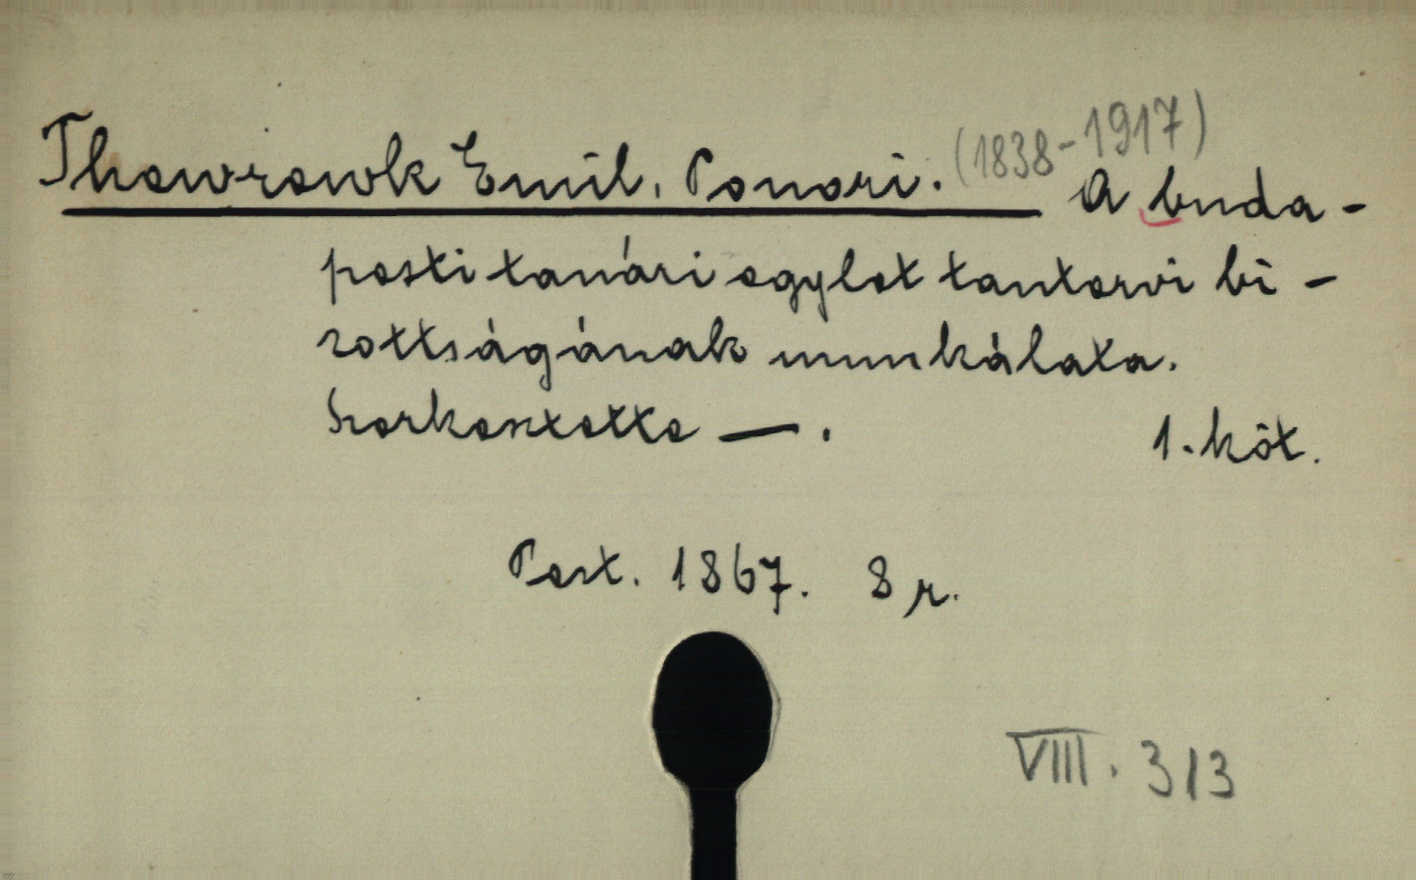 Thewrewk Emil, Ponori. (1838-1917) A buda-
pesti tanári egylet tantervi bi-
zottságának munkálata.
Szerkesztette —. 1. köt.
Pest. 1867. 8 r.
VIII. 313